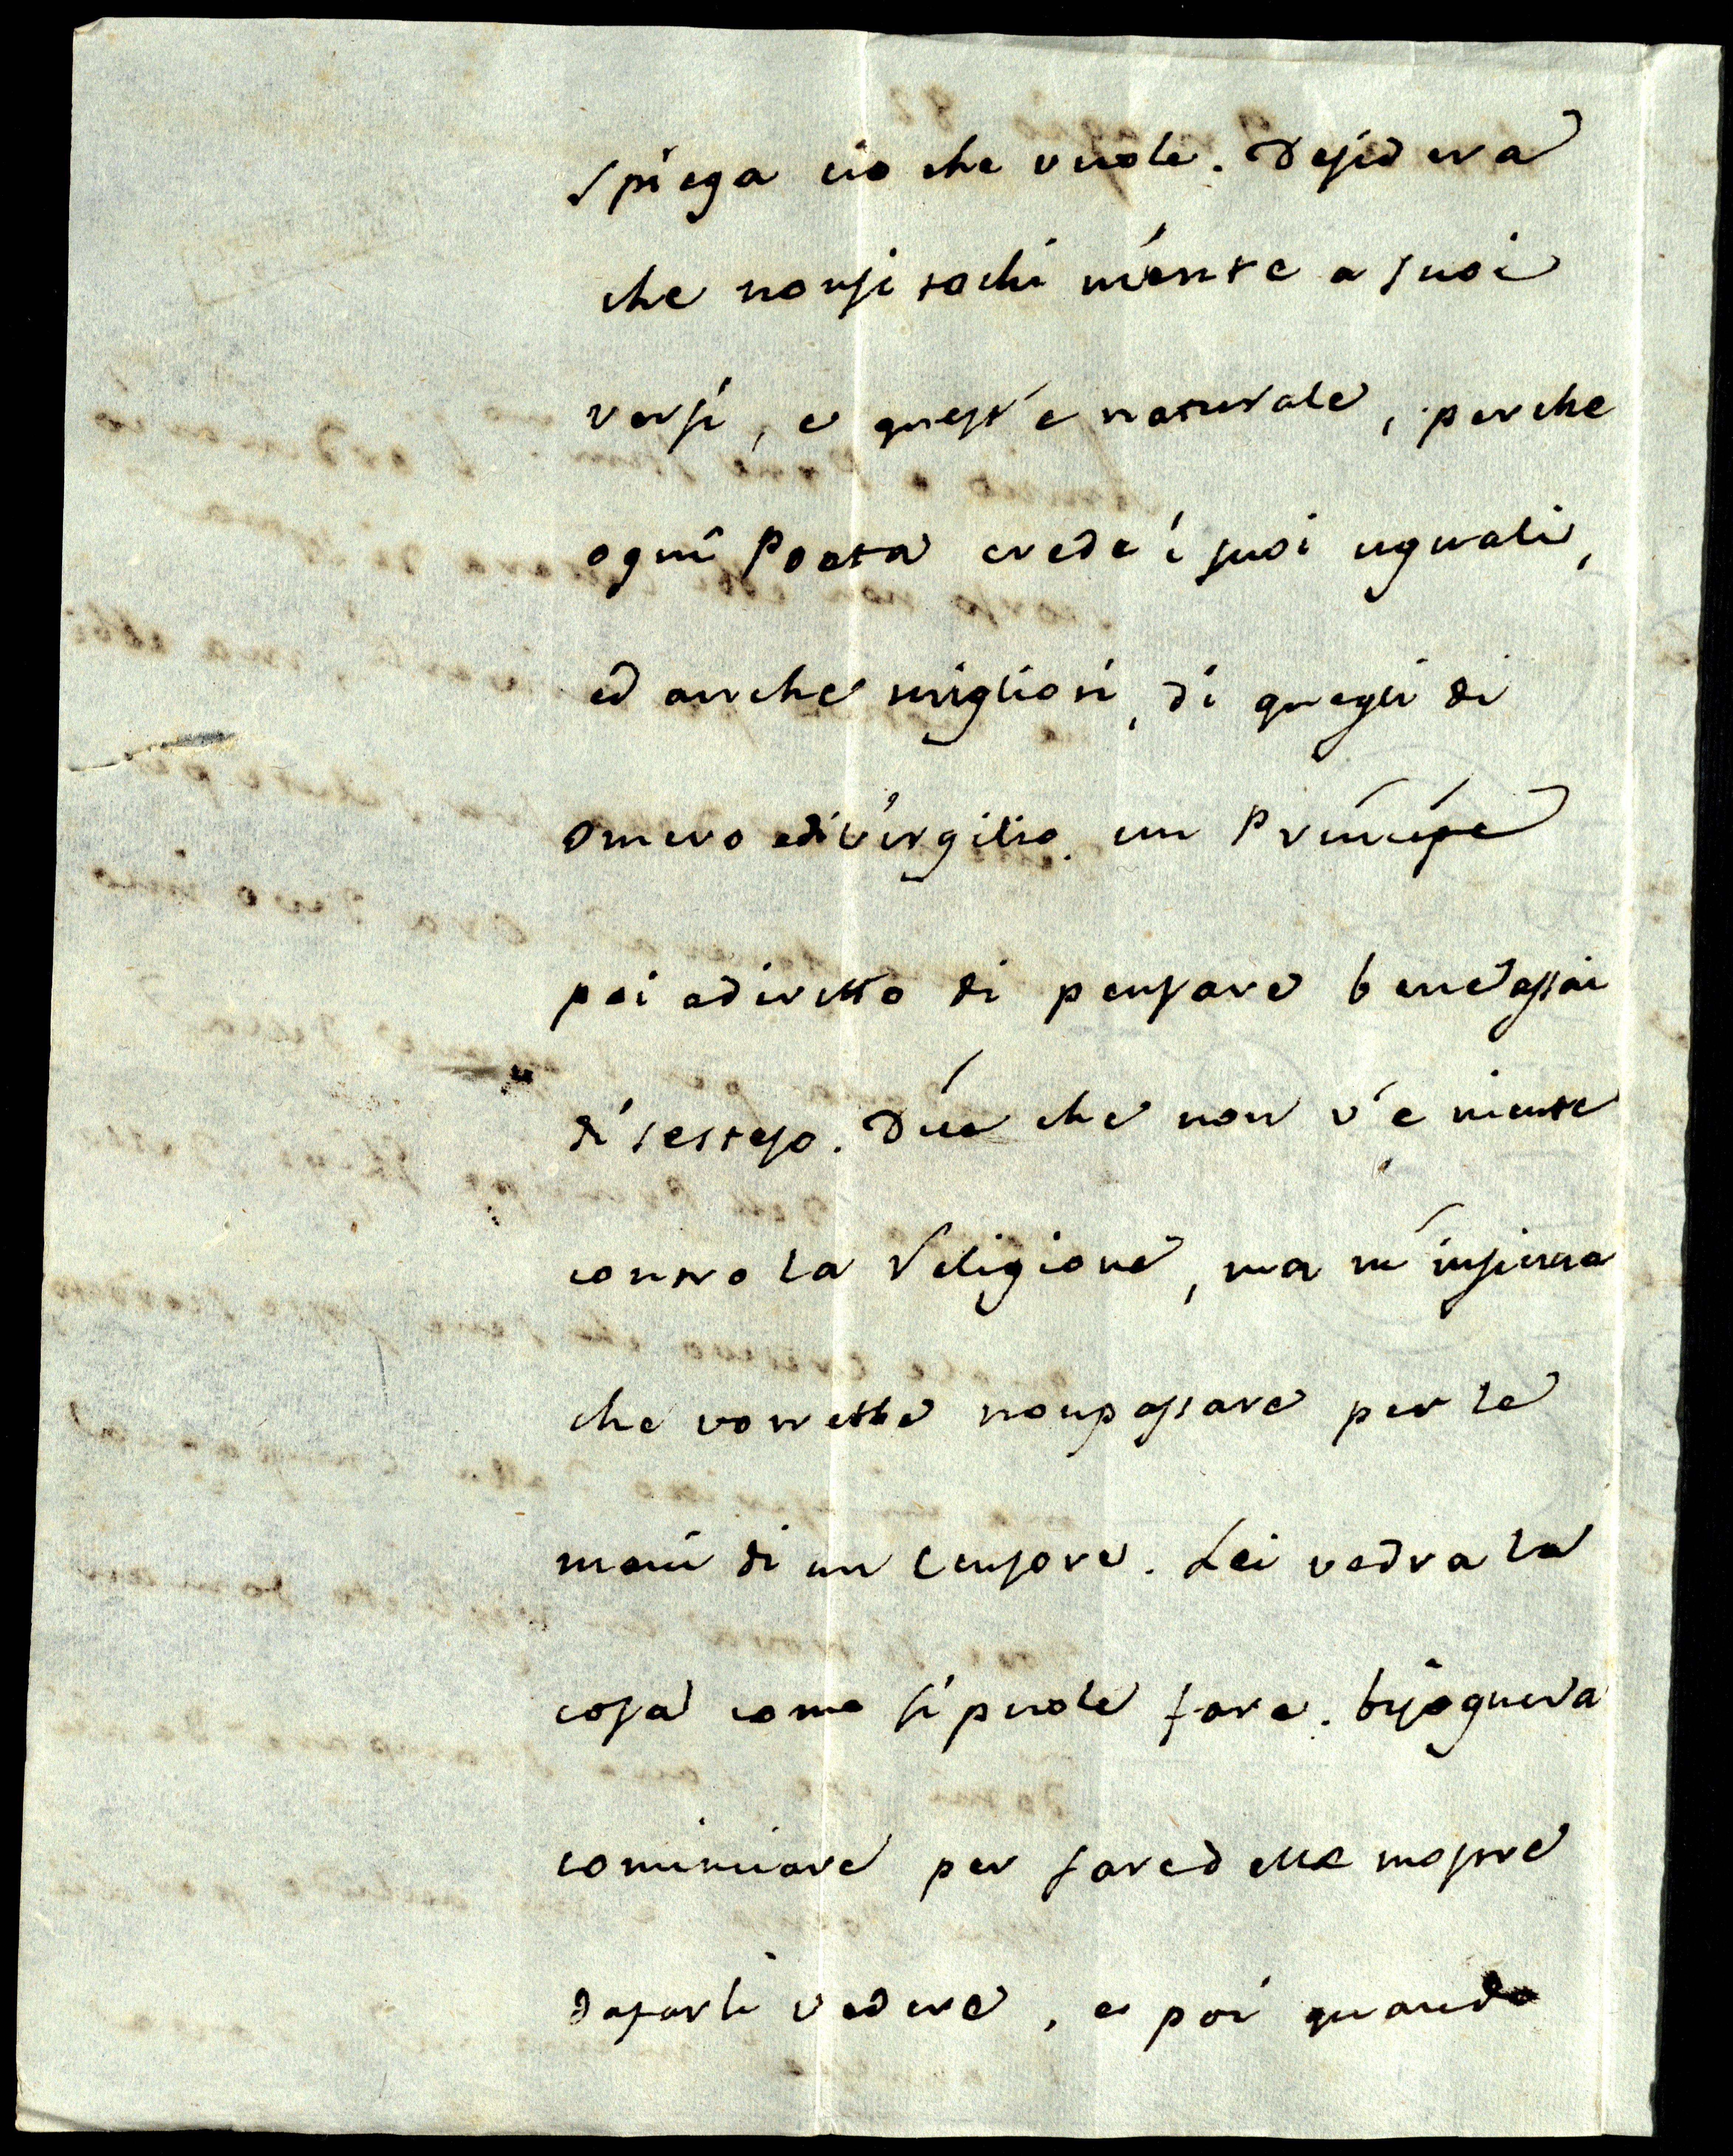 spiega cio che vuole. Desidera
che non si tochi niente a suoi
versi, e quest'e naturale, perche
ogni Poeta crede i suoi uguali,
ed anche migliori, di quegli di
Omero edi Virgilio. un Principe
poi a diritto di pensare bene assai
di sestesso. Dice che non v'e niente
contro la Religione, ma m'insinua
che vorrebbe non passare per le
mani di un Censore. Lei vedra la
cosa come si puole fare. bisognera
cominciare per fare delle mostre
dafarli vedere, e poi quando